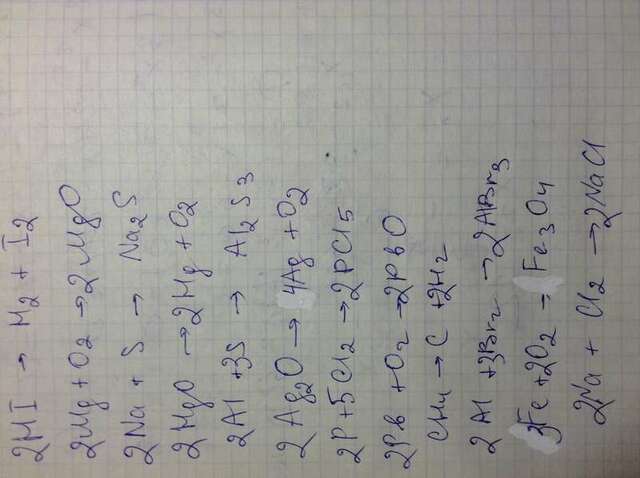 2HI → H2 + I2
2Mg + O2 → 2MgO
2Na + S → Na2S
2HgO → 2Hg + O2
2Al + 3S → Al2S3
2Ag2O → 4Ag + O2
2P + 5Cl2 → 2PCl5
2Pb + O2 → 2PbO
CH4 → C + 2H2
2Al + 3Br2 → 2AlBr3
3Fe + 2O2 → Fe3O4
2Na + Cl2 → 2NaCl